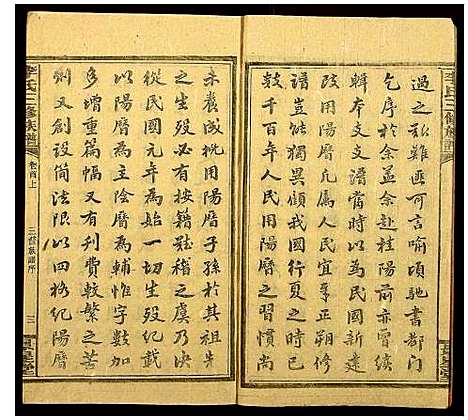 過之艱難匪可言喻頃馳書都門
乞序於余並余赴桂陽前亦曾續
輯本支譜當時以為民國新建
改用陽曆為共和人民宜奉正朔修
譜豈獨異傾我國行夏之時已
數千百年人民用陽曆之習慣尚
未養成梲用陽曆子孫於其祖先
之生歿必有按籍難稽之虞乃決
從民國元年為始一切生歿紀載
以陽曆為主陰曆為輔惟字數加
多增重篇幅又有刊費較繁之苦
痢又創設簡法限以四格紀陽曆
李氏三修族譜
卷首上
三修族譜所
三
李氏三修族譜